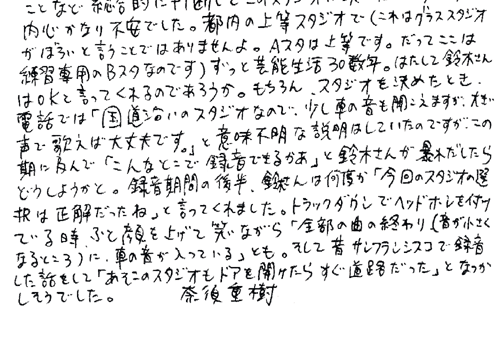 ことなど総合的に判断してこのスタジオに
内心かなり不安でした。都内の上等スタジオで(これはグラススタジオ
がぼろいと言うことではありませんよ。Aスタは上等です。だってここは
練習専用のBスタなのです)ずっと芸能生活30数年。はたして鈴木さん
はOKと言ってくれるのであろうか。もちろん、スタジオを決めたとき、
電話では「国道沿いのスタジオなので、少し車の音も聞こえますが、大きい
声で歌えば大丈夫です。」と意味不明な説明はしていたのですが、この
期に及んで「こんなとこで録音できるかあ」と鈴木さんが暴れだしたら
どうしようかと。録音期間の後半、鈴木さんは何度か「今回のスタジオの選
択は正解だったね」と言ってくれました。トラックダウンでヘッドホンを付け
ている時、ふと顔を上げて笑いながら「全部の曲の終わり(音が小さく
なるところ)に、車の音が入っている」とも。そして昔サンフランシスコで録音
した話をして「あそこのスタジオもドアを開けたらすぐ道路だった」となつか
しそうでした。 奈須重樹